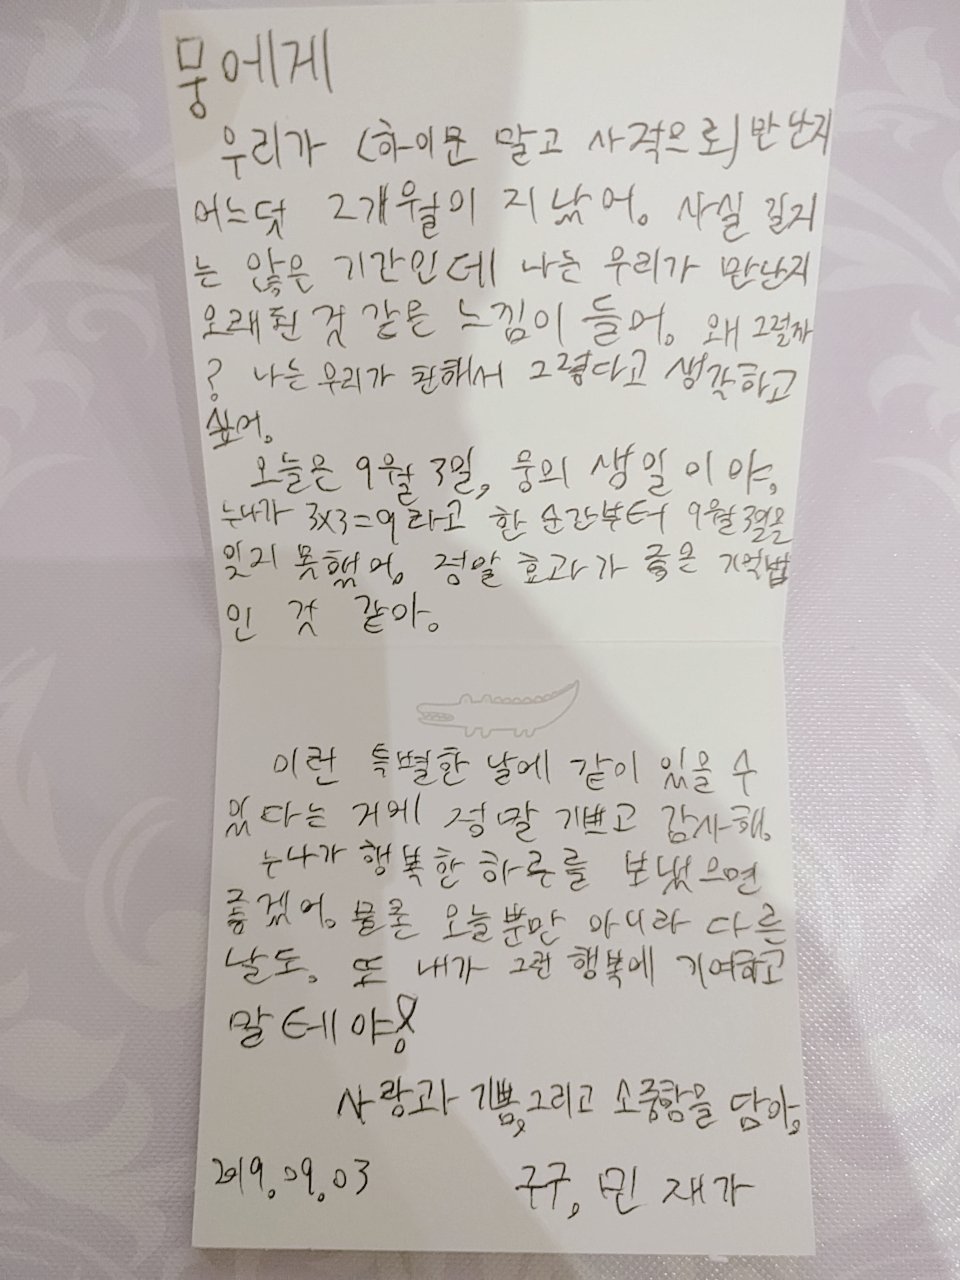 뭉에게
우리가 (하이문 말고 사적으로) 만난지
어느덧 2개월이 지났어. 사실 길지
는 않은 기간인데 나는 우리가 만난지
오래된 것 같은 느낌이 들어. 왜 그럴까
? 나는 우리가 친해서 그렇다고 생각하고
싶어.
오늘은 9월 3일, 뭉의 생일이야,
누나가 3x3=9라고 한 순간부터 9월 3일을
잊지 못했어. 정말 효과가 좋은 기억법
인 것 같아.
이런 특별한 날에 같이 있을 수
있다는 거에 정말 기쁘고 감사해.
누나가 행복한 하루를 보냈으면
좋겠어. 물론 오늘뿐만 아니라 다른
날도. 또 내가 그런 행복에 기여하고
말테야!
사랑과 기쁨, 그리고 소중함을 담아,
2019.09.03 구구, 민재가